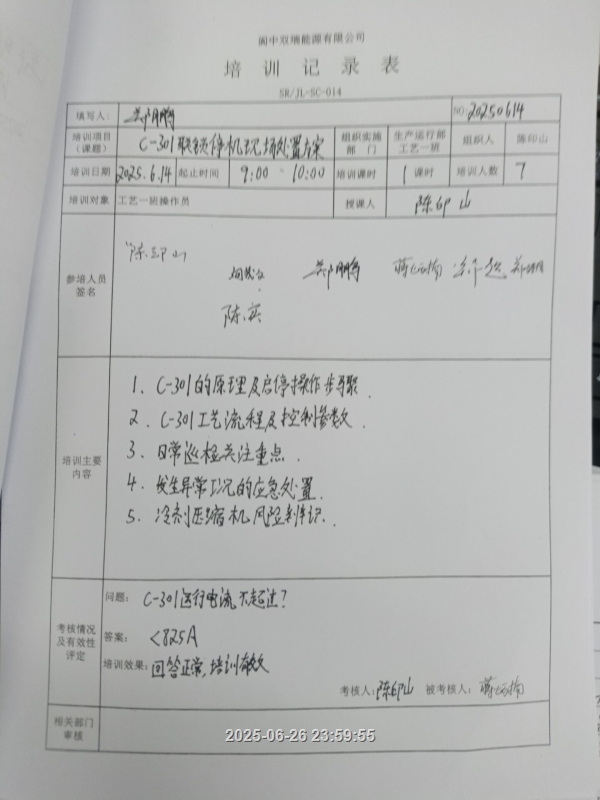 阆中双瑞能源有限公司
培训记录表
SR/JL-SC-014
填写人: 郑鹏 NO:20250614
培训项目（课题） C-301联锁停机现场处置方案 组织实施部门 生产运行部工艺一班 组织人 陈印山
培训日期 2025.6.14 起止时间 9:00-10:00 培训课时 1课时 培训人数 7
培训对象 工艺一班操作员 授课人 陈印山
参培人员签名
陈印山
郑鹏
陈实
培训主要内容
1. C-301的原理及启停操作步骤.
2. C-301工艺流程及控制参数
3. 日常巡检关注重点.
4. 发生异常工况的应急处置.
5. 冷剂压缩机风险辨识.
考核情况及有效性评定
问题: C-301运行电流不超过?
答案: <825A
培训效果: 回答正常,培训有效
考核人: 陈印山 被考核人:
相关部门审核
2025-06-26 23:59:55